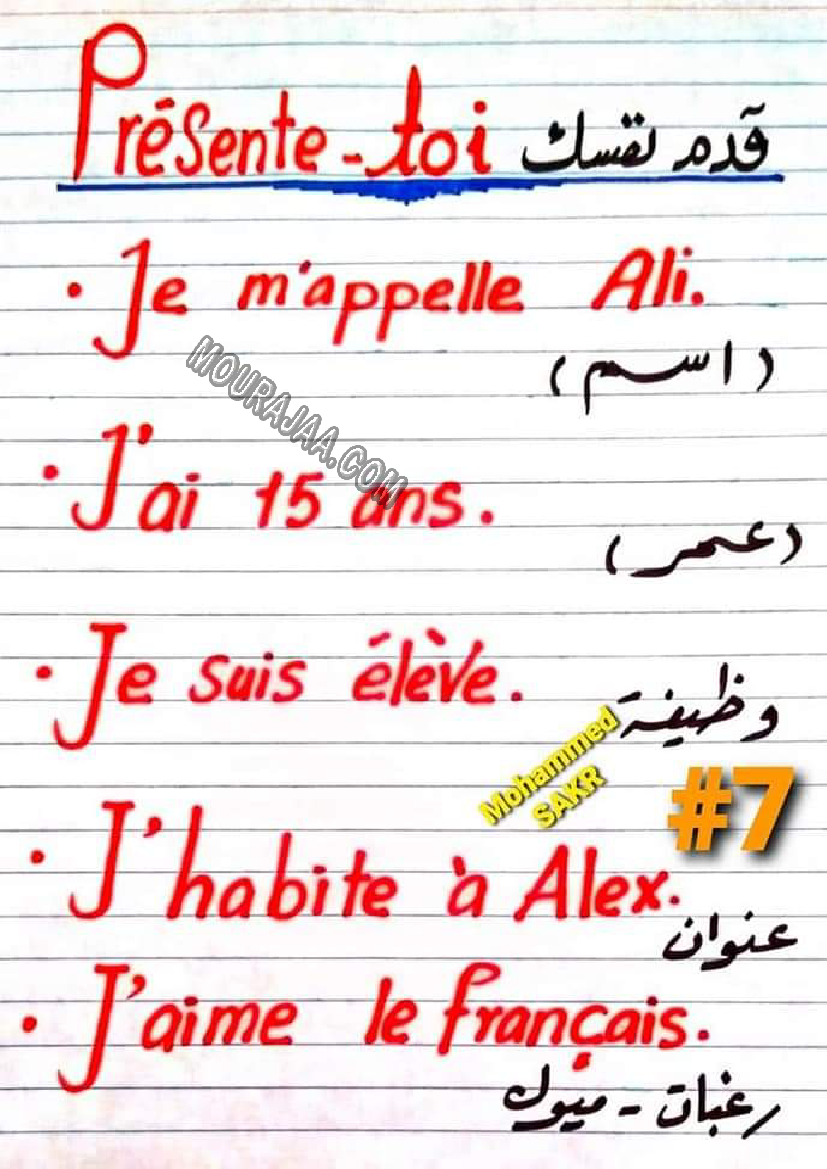 Présente-toi قدم نفسك
• Je m'appelle Ali.
(اسم)
MOURAJAA.COM
• J'ai 15 ans.
(عمر)
• Je suis élève.
وظيفة
Mohammed
SAKR
#7
• J'habite à Alex.
عنوان
• J'aime le français.
رغبات - ميول